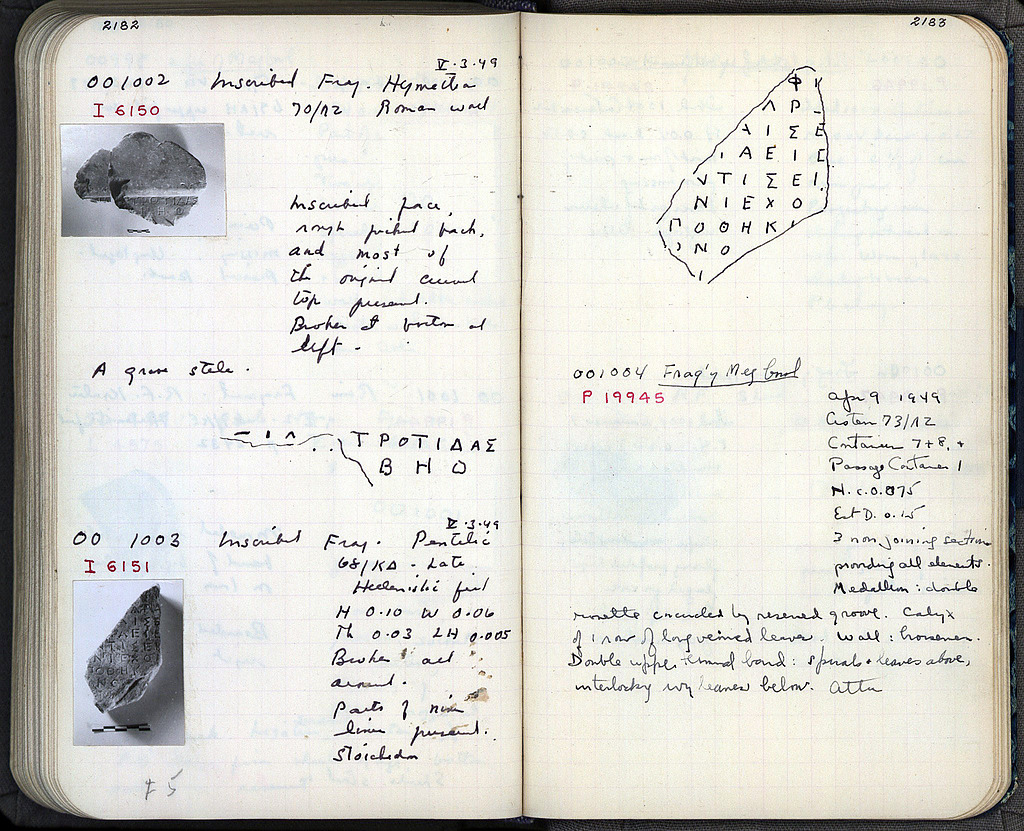 2182
V·3·49
001002 Inscribed Frag. Hymettian
I 6150 70/ΛΖ Roman wall
Inscribed face,
rough picked back,
and most of
the original curved
top present.
Broken at bottom at
left.
A grave stele.
ΤΡΟΤΙΔΑΣ
ΒΗΟ
V·3·49
00 1003 Inscribed Frag. Pentelic
I 6151 68/ΚΔ - Late
Hellenistic fill
H 0.10 W 0.06
Th 0.03 LH 0.005
Broken all
around.
Parts of nine
lines present.
Stoichedon
2183
Φ Κ
Λ Ρ
Ι Σ Ε
Α Ε Ι Ε
Ν Τ Ι Σ Ε Ι
Ν Ι Ε Χ Ο
Γ Ο Θ Η Κ
Ο Ν Ο
Ι
001004 Frag'y Meg bowl
P 19945 Apr 9 1949
Cistern 73/ΛΖ
Container 7+8, +
Passage Container 1
H.c.0.075
Est D. 0.15
3 non joining sections
providing all elements.
Medallion: double
rosette encircled by reserved groove. Calyx
of 1 row of long veined leaves. Wall: horsemen.
Double upper rim band: spirals + leaves above,
interlocking ivy leaves below. Attic